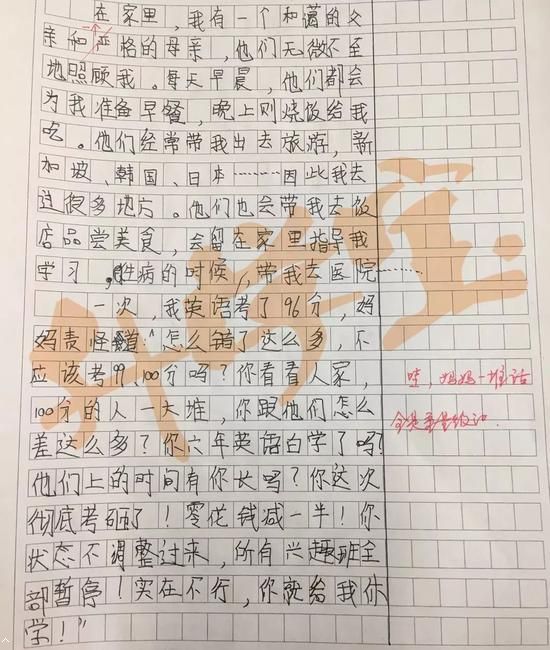 在家里，我有一个和蔼的父
亲和一严格的母亲，他们无微不至
地照顾我。每天早晨，他们都会
为我准备早餐，晚上则烧饭给我
吃。他们经常带我出去旅游，新
加坡、韩国、日本………因此我去
过很多地方。他们也会带我去饭
店品尝美食，会留在家里指导我
学习，生病的时候，带我去医院………
一次，我英语考了96分，妈
妈责怪道："怎么错了这么多，不
应该考99、100分吗？你看看人家，
哇，妈妈一堆话
100分的人一大堆，你跟他们怎么
全是
差这么多？你六年英语白学了吗？
他们上的时间有你长吗？你这次
彻底考砸了！零花钱减一半！你
状态不调整过来，所有兴趣班全
部暂停！实在不行，你就给我休
学！"
升学宝